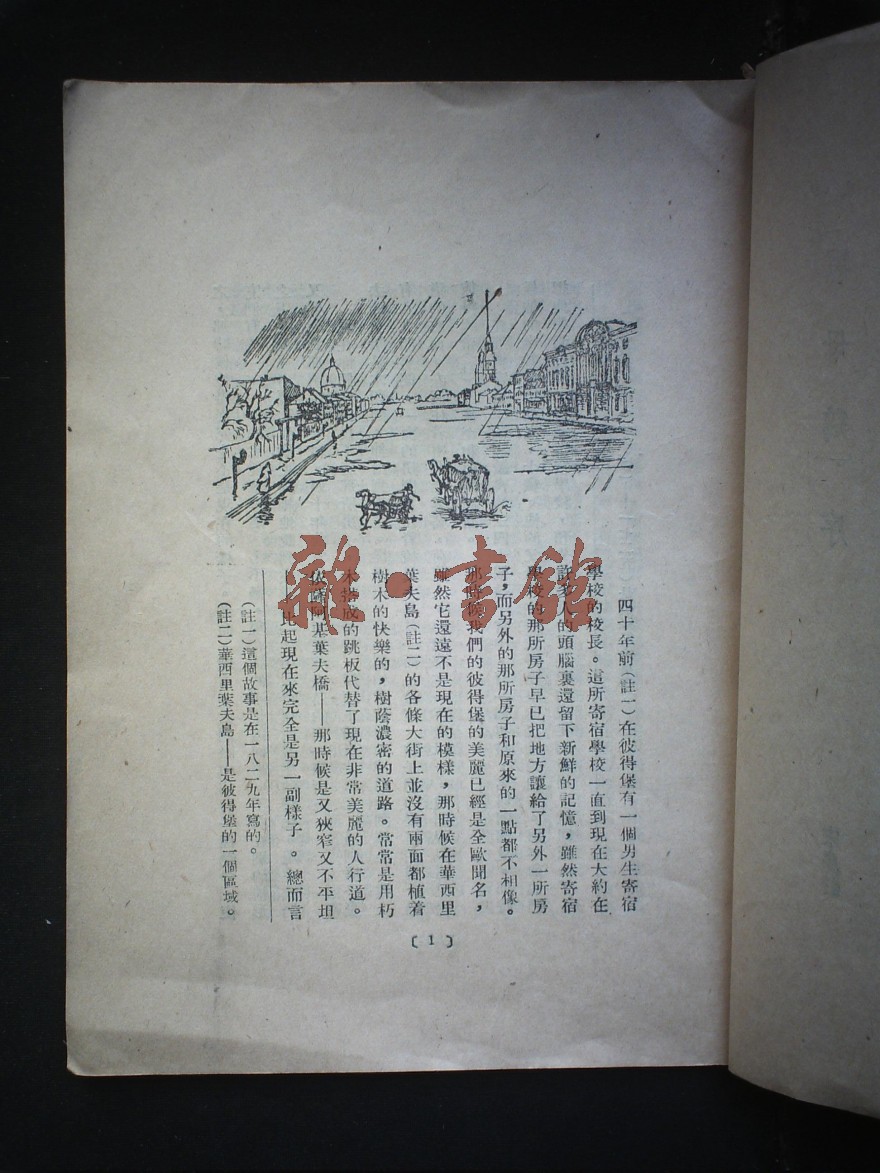 四十年前(註一)在彼得堡有一個男生寄宿
學校的校長。這所寄宿學校一直到現在大約在
許多人的頭腦裏還留下新鮮的記憶，雖然寄宿
學校的那所房子早已把地方讓給了另外一所房
子，而另外的那所房子和原來的一點都不相像。
那時候我們的彼得堡的美麗已經是全歐聞名，
雖然它還遠不是現在的模樣，那時候在華西里
葉夫島(註二)的各條大街上並沒有兩面都植着
樹木的快樂的，樹蔭濃密的道路。常常是用朽
木搭成的跳板代替了現在非常美麗的人行道。
依薩阿基葉夫橋——那時候是又狹窄又不平坦
——比起現在來完全是另一副樣子。總而言
(註一)這個故事是在一八二九年寫的。
(註二)華西里葉夫島——是彼得堡的一個區域。
〔1〕
雜·書館